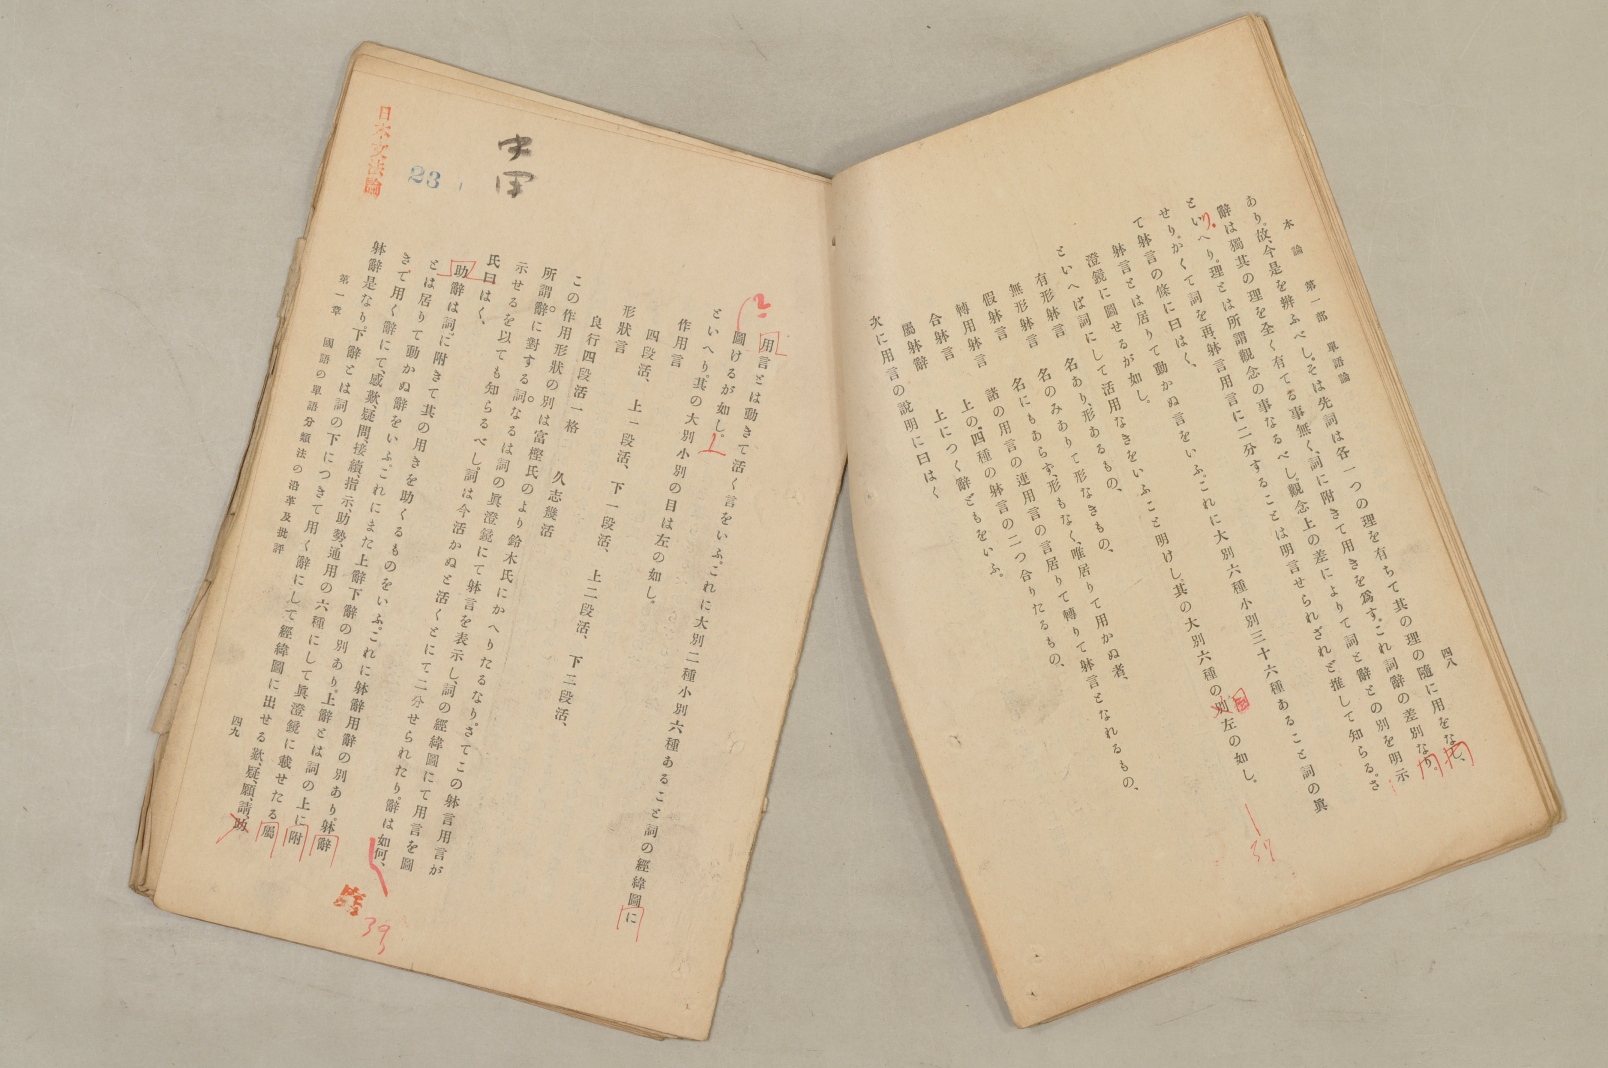 本論 第一部 單語論 四八
あり。故、今是を辨ふべし。そは先詞は各一つの理を有ちて其の理の隨に用をなし、
辭は獨其の理を全く有てる事無く、詞に附きて用きを爲す。これ詞辭の差別なり。
といへり。理とは所謂觀念の事なるべし。觀念上の差によりて詞と辭との別を明示
せり。かくて詞を再、躰言用言に二分することは明言せられざれど推して知らる。さ
て躰言の條に曰はく、
躰言とは居りて動かぬ言をいふ。これに大別六種小別三十六種あること詞の眞
澄鏡に圖せるが如し。
といへば詞にして活用なきをいふこと明けし。其の大別六種の別左の如し。
有形躰言 名あり、形あるもの、
無形躰言 名のみありて形なきもの、
假躰言 名にもあらず、形もなく、唯居りて用かぬ者、
轉用躰言 諸の用言の連用言の言居りて轉りて躰言となれるもの、
合躰言 上の四種の躰言の二つ合りたるもの、
屬躰辭 上につく辭どもをいふ。
次に用言の說明に曰はく
用言とは動きて活く言をいふ。これに大別二種小別六種あること詞の經緯圖に
圖けるが如し。
といへり。其の大別小別の目は左の如し。
作用言
四段活、 上一段活、 下一段活、 上二段活、 下二段活、
形狀言
良行四段活一格 久志幾活
この作用形狀の別は富樫氏のより鈴木氏にかへりたるなり。さてこの躰言用言が
所謂辭に對する詞なるは詞の眞澄鏡にて躰言を表示し、詞の經緯圖にて用言を圖
示せるを以ても知らるべし。詞は今活かぬと活くとにて二分せられたり。辭は如何、
氏曰はく、
助辭は詞に附きて其の用きを助くるものをいふ。これに躰辭用辭の別あり。躰辭
とは居りて動かぬ辭をいふ。これにまた上辭下辭の別あり。上辭とは詞の上に附
きて用く辭にて、感歎、疑問、接續、指示、助勢、通用の六種にして眞澄鏡に載せたる屬
躰辭是なり。下辭とは詞の下につきて用く辭にして經緯圖に出せる歎、疑、願、請、助、
第一章 國語の單語分類法の沿革及批評 四九
日本文法論
23
39